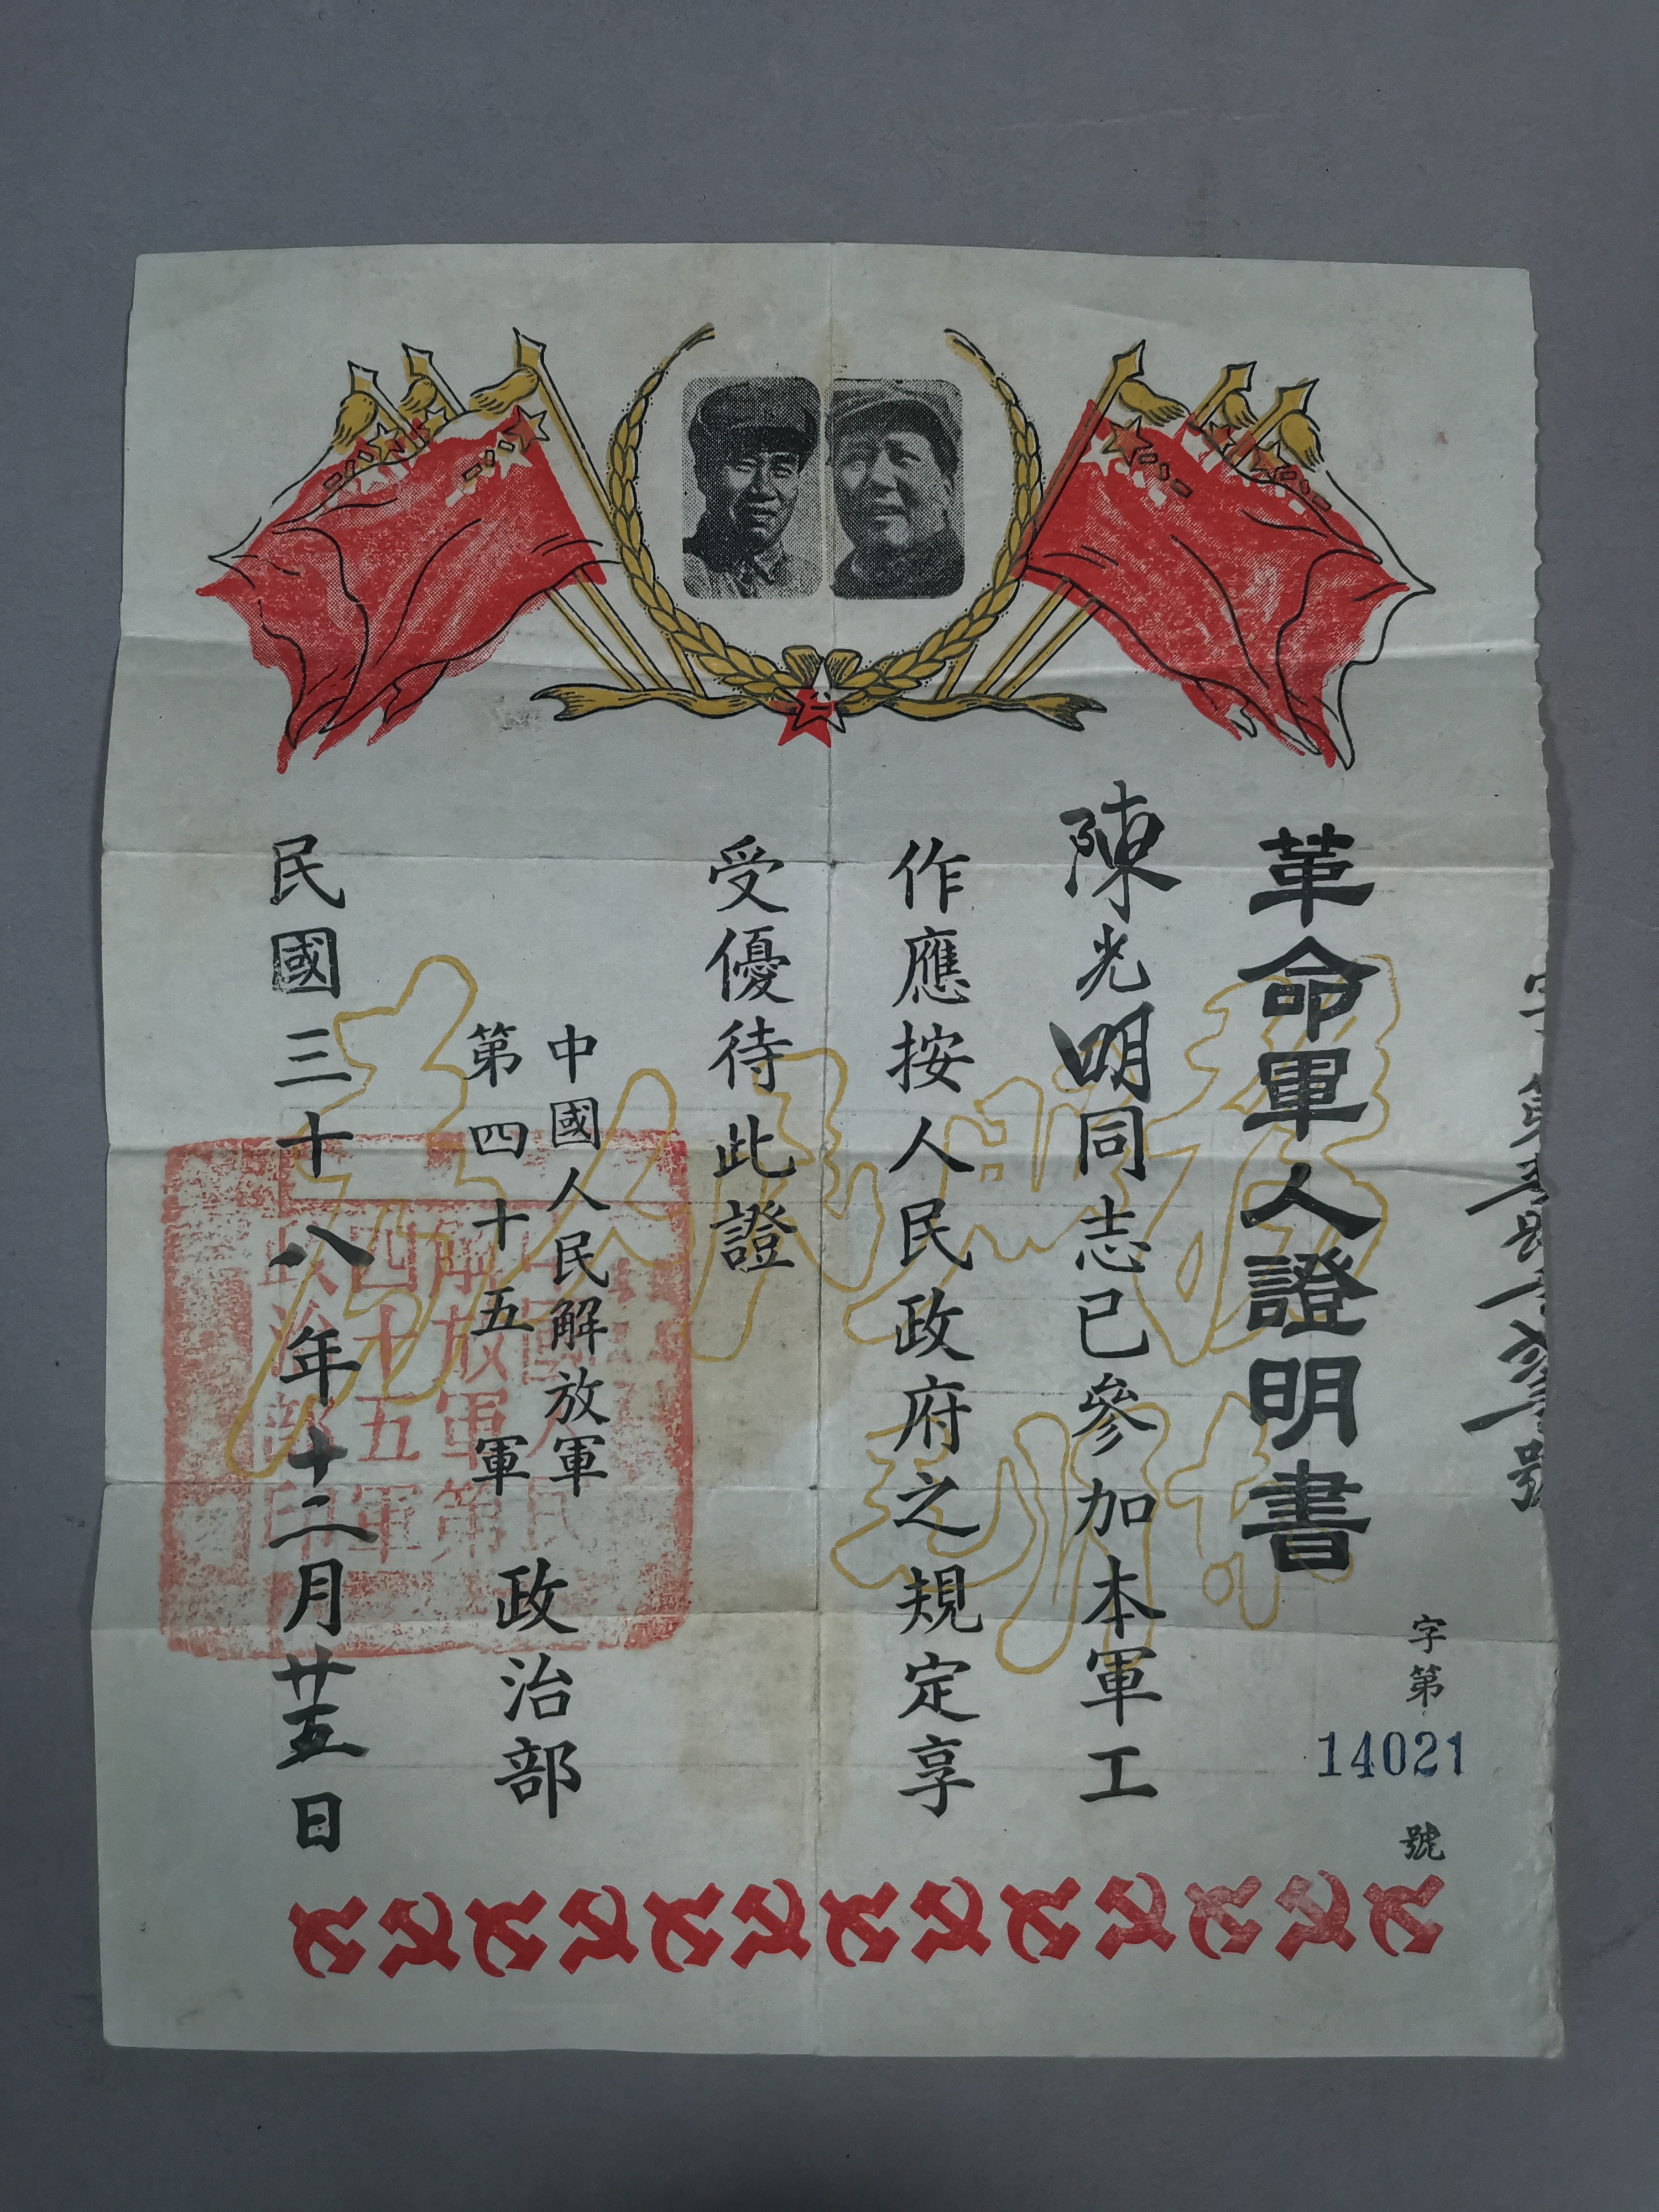 革命軍人證明書
字第
14021
號
陳光明同志已參加本軍工
作應按人民政府之規定享
受優待此證
中國人民解放軍
第四十五軍
政治部
民國三十八年十二月廿五日
中國人民
解放軍第
四十五軍
政治部印